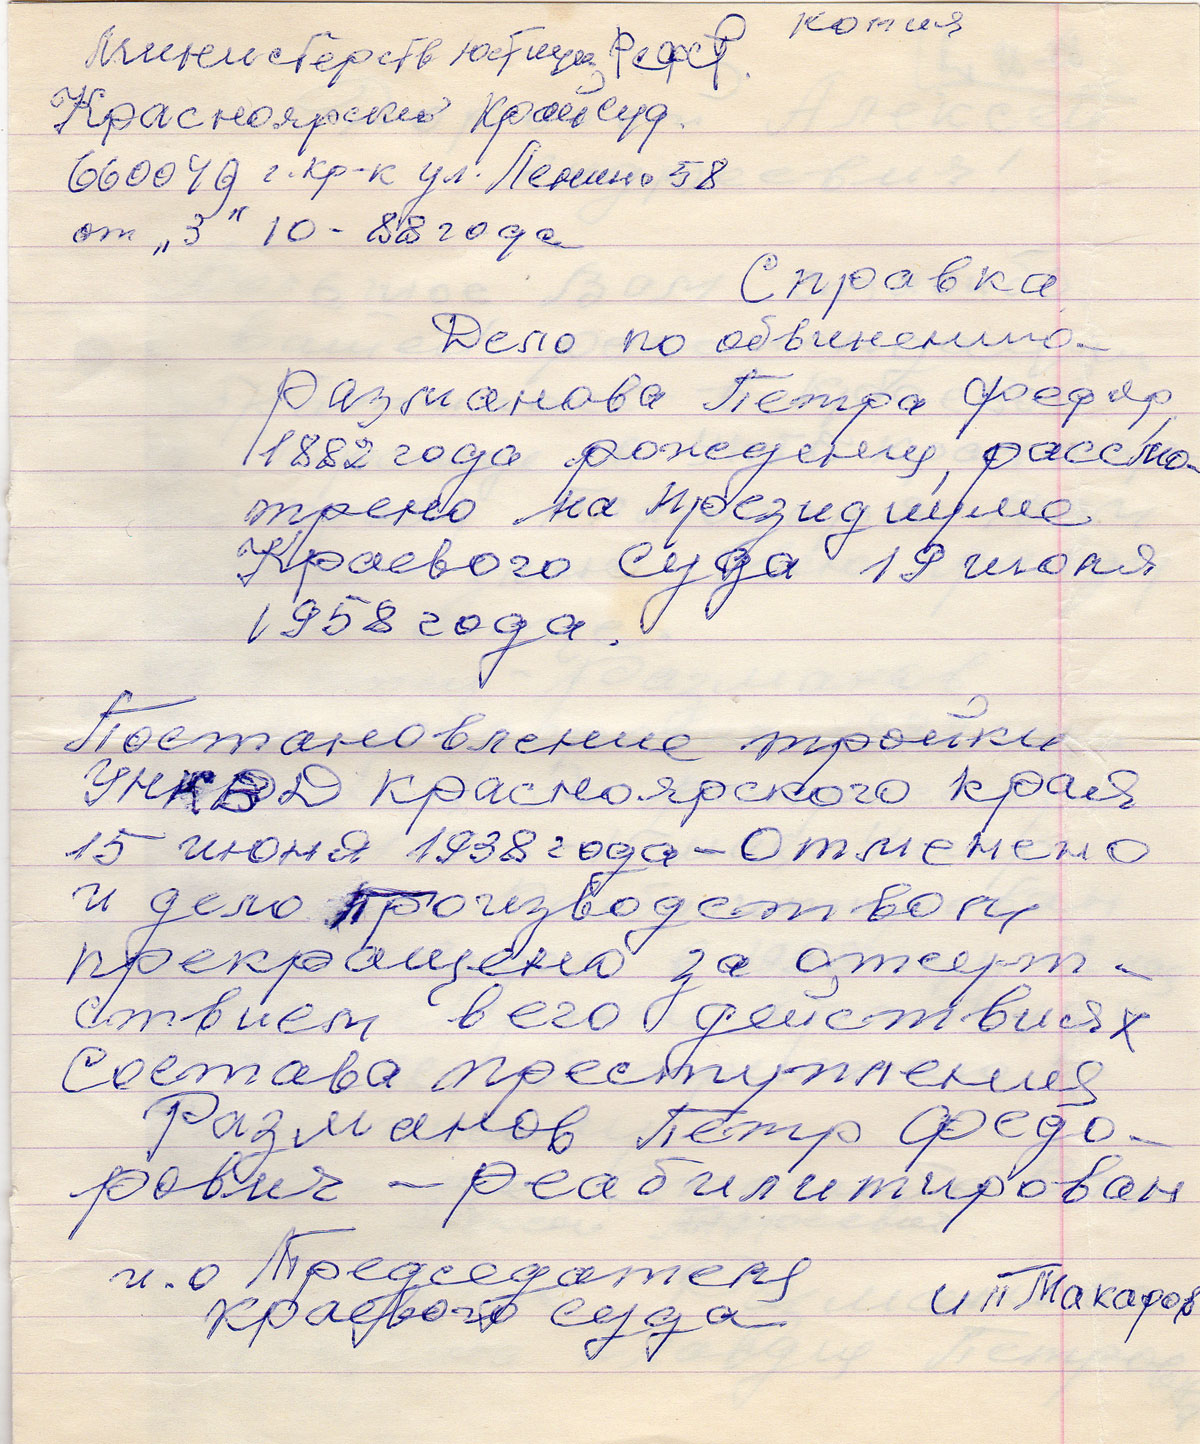 копия
Министерств Юстиции РСФСР.
Красноярский крайсуд.
660049 г. Кр-к ул. Ленина 58
от „3" 10 - 88 года
Справка
Дело по обвинению
Разманова Петра Федор,
1882 года рождения, рассмо-
трено на президиуме
Краевого суда 19 июля
1958 года.
Постановление тройки
УНКВД Красноярского края
15 июня 1938 года - отменено
и дело производством
прекращено за отсут-
ствием в его действиях
состава преступления
Разманов Петр Федо-
рович - реабилитирован
и.о Председателя
краевого суда
И П Макаров